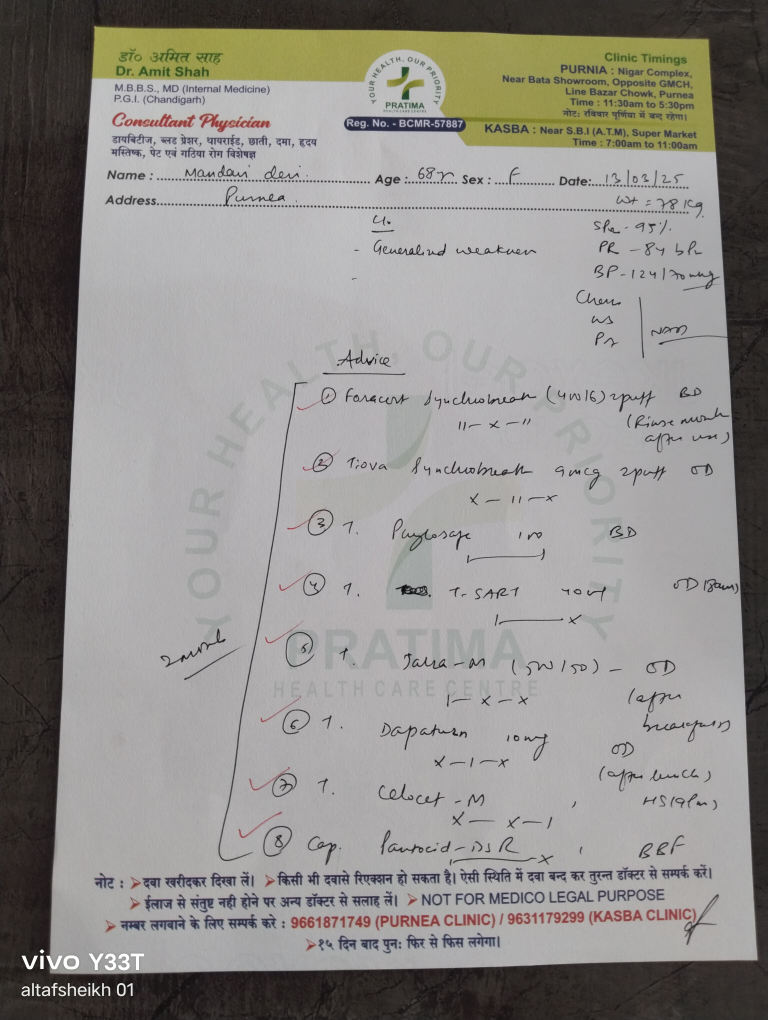 डॉ० अमित साह
Dr. Amit Shah
M.B.B.S., MD (Internal Medicine)
P.G.I. (Chandigarh)
Consultant Physician
डायबिटीज, ब्लड प्रेशर, थायराईड, छाती, दमा, हृदय
मस्तिष्क, पेट एवं गठिया रोग विशेषज्ञ
YOUR HEALTH, OUR PRIORITY
PRATIMA
HEALTH CARE CENTRE
Reg. No. - BCMR-57887
Clinic Timings
PURNIA : Nigar Complex,
Near Bata Showroom, Opposite GMCH,
Line Bazar Chowk, Purnea
Time : 11:30am to 5:30pm
नोट: रविवार पूर्णिया में बन्द रहेगा।
KASBA : Near S.B.I (A.T.M), Super Market
Time : 7:00am to 11:00am
Name : Mandavi devi Age : 68 Y Sex : F Date: 13/03/25
Address Purnea Wt = 78 Kg
- Generalised weakness
95%
PR - 84
BP - 124/70
Chest
YOUR HEALTH, OUR PRIORITY
PRATIMA
HEALTH CARE CENTRE
Advice
① Foracort Synchrobreath 2puff BD
(Rinse mouth
after use)
② Tiova Synchrobreath 9mcg 2puff OD
x - 11 - x
③ T. BD
④ T. T-SART 40 OD
⑤ T. -M (500/50) - OD
1 - x - x (after
breakfast)
⑥ T. 10mg OD
x - 1 - x (after lunch)
⑦ T. -M HS
x - x - 1
⑧ Cap. Pantocid-DSR BBF
नोट : ➤दवा खरीदकर दिखा लें। ➤किसी भी दवासे रिएक्शन हो सकता है। ऐसी स्थिति में दवा बन्द कर तुरन्त डॉक्टर से सम्पर्क करें।
➤ईलाज से संतुष्ट नही होने पर अन्य डॉक्टर से सलाह लें। ➤ NOT FOR MEDICO LEGAL PURPOSE
➤ नम्बर लगवाने के लिए सम्पर्क करे : 9661871749 (PURNEA CLINIC) / 9631179299 (KASBA CLINIC)
➤१५ दिन बाद पुनः फिर से फिस लगेगा।
vivo Y33T
altafsheikh 01